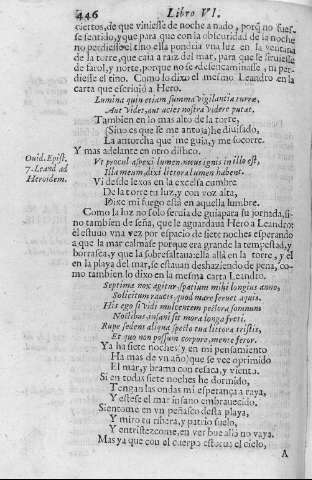 446 Libro VI.
ciertos, de que viniesse de noche a nado, porq̃ no fues-
se sentido, y que para que con la obscuridad de la noche
no perdiesse el tino ella pondria vna luz en la ventana
de la torre, que caia a raiz del mar, para que le siruiesse
de farol, y norte, porque no se desencaminasse, ni per-
diesse el tino. Como lo dixo el mesmo Leandro en la
carta que escriuió a Hero.
Lumina quin etiam summa vigilantia turre,
Aut videt, aut acies nostra videre putat.
Tambien en lo mas alto de la torre,
(Sino es que se me antoja) he diuisado,
La antorcha que me guia, y me socorre.
Y mas adelante en otro distico.
Ouid. Epist.
7. Leand. ad
Heroidem.
Vt procul aspexi lumen, meus ignis in illo est,
Illa meum, dixi littora lumen habent.
Vi desde lexos en la excelsa cumbre
De la torre tu luz, y con voz alta,
Dixe mi fuego está en aquella lumbre.
Como la luz no solo seruia de guia para su jornada, si-
no tambien de seña, que le aguardaua Hero a Leandro:
el estuuo vna vez por espacio de siete noches esperando
a que la mar calmase porque era grande la tempestad, y
borrasca, y que la sobresaltaua: ella allà en la torre, y él
en la playa del mar, se estauan deshaziendo de pena, co-
mo tambien lo dixo en la mesma carta Leandro.
Septima nox agitur, spatium mihi longius anno,
Solicitum raucis, quod mare feruet aquis.
His ego si vidi mulcentem pectora somnum
Noctibus, insani sit mora longa freti.
Rupe sedens aliqua specto tua littora tristis,
Et quo non possum corpore, mente feror.
Ya ha siete noches y en mi pensamiento
Ha mas de vn año, que se vee oprimido
El mar, y brama con resaca, y viento.
Si en todas siete noches he dormido,
Tengan las ondas mi esperança a raya,
Y estese el mar insano embrauecido.
Sientome en vn peñasco desta playa,
Y miro tu ribera, y patrio suelo,
Y entristezcome, en ver que allá no vaya.
Mas ya que con el cuerpo estoruas el cielo,
A